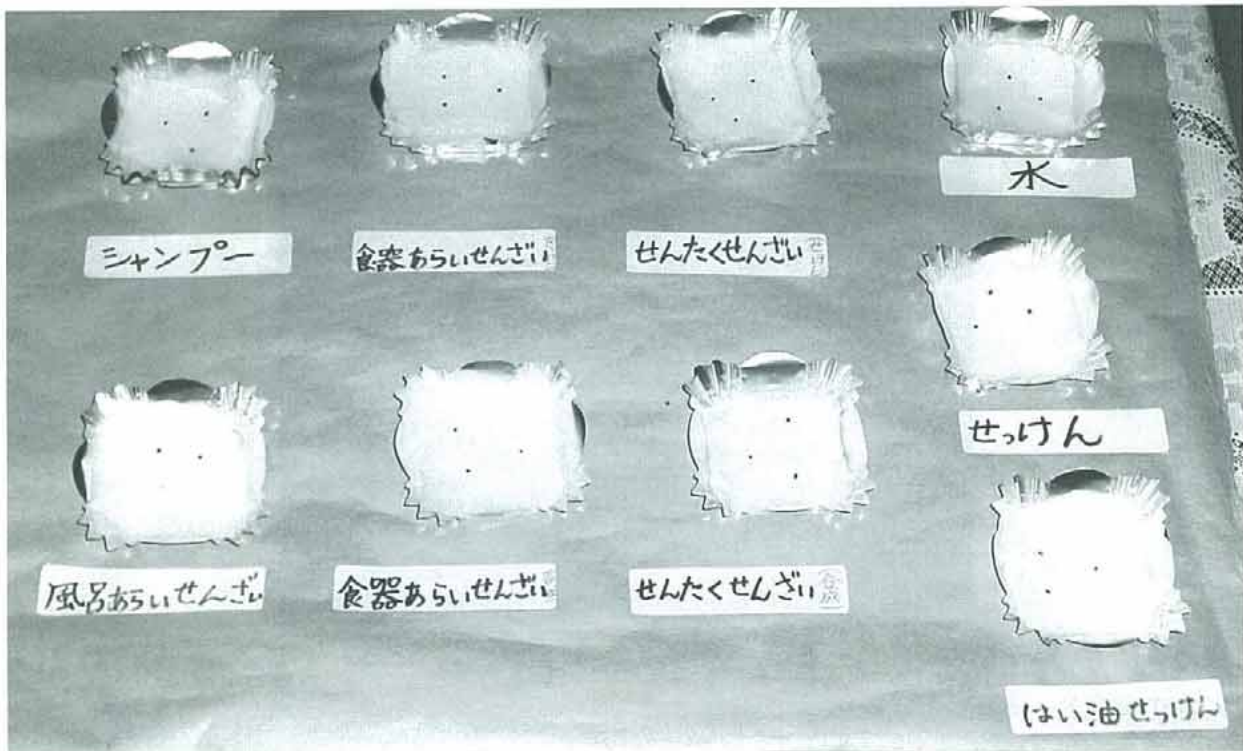 水
シャンプー
食器あらいせんざい
せんたくせんざい
せっけん
風呂あらいせんざい
食器あらいせんざい
せんたくせんざい 合成
はい油せっけん